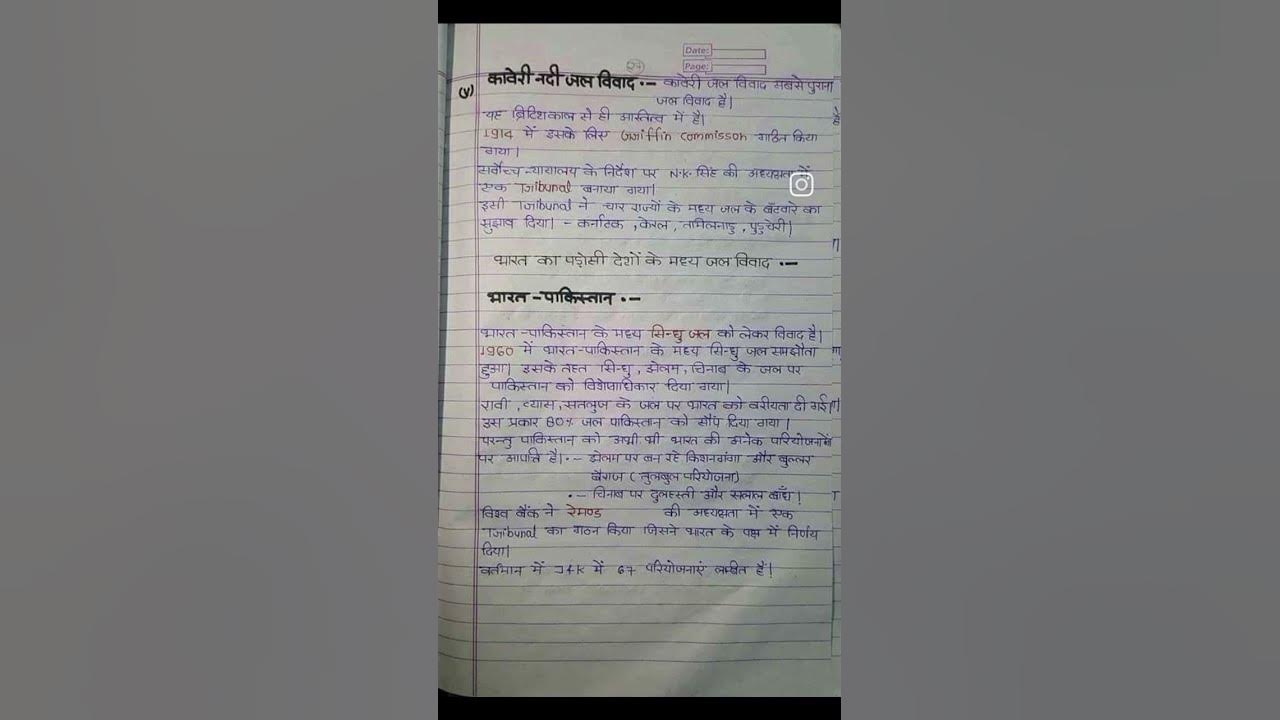 Date:
Page:
27
(v) कावेरी नदी जल विवाद :- कावेरी जल विवाद सबसे पुराना
जल विवाद है।
यह ब्रिटिशकाल से ही अस्तित्व में है।
1914 में इसके लिए Griffin Commisson गठित किया
गया।
सर्वोच्च न्यायालय के निर्देश पर N.K. सिंह की अध्यक्षता में
एक Tribunal बनाया गया।
इसी Tribunal ने चार राज्यों के मध्य जल के बँटवारे का
सुझाव दिया। - कर्नाटक, केरल, तामिलनाडु, पुडुचेरी।
भारत का पड़ोसी देशों के मध्य जल विवाद :-
भारत-पाकिस्तान :-
भारत-पाकिस्तान के मध्य सिन्धु जल को लेकर विवाद है।
1960 में भारत-पाकिस्तान के मध्य सिन्धु जल समझौता
हुआ। इसके तहत सिन्धु, झेलम, चिनाब के जल पर
पाकिस्तान को विशेषाधिकार दिया गया।
रावी, व्यास, सतलुज के जल पर भारत को वरीयता दी गई।
उस प्रकार 80% जल पाकिस्तान को सौंप दिया गया।
परन्तु पाकिस्तान को अभी भी भारत की अनेक परियोजनाओं
पर आपत्ति है। :- झेलम पर बन रहे किशनगंगा और बुल्लर
बैराज (तुलबुल परियोजना)
:- चिनाब पर दुलहस्ती और सलाल बाँध।
विश्व बैंक ने रेमण्ड की अध्यक्षता में एक
Tribunal का गठन किया जिसने भारत के पक्ष में निर्णय
दिया।
वर्तमान में J&K में 67 परियोजनाएं लम्बित हैं।